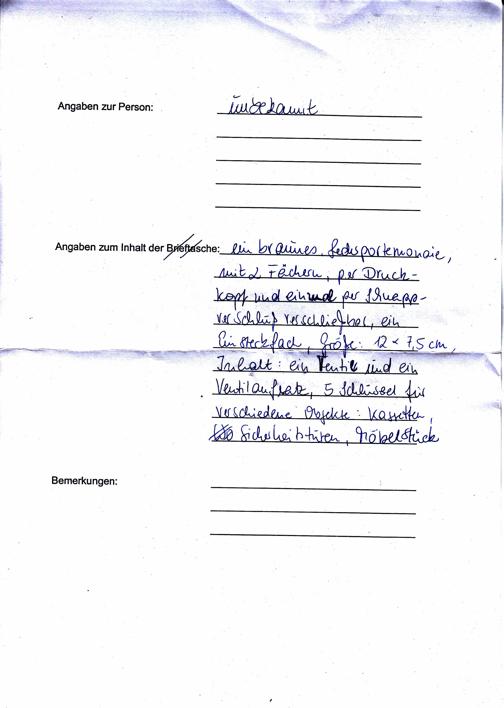 Angaben zur Person: unbekannt
Angaben zum Inhalt der Brieftasche: ein braunes Lederportemonaie,
mit 2 Fächern, per Druck-
kopf und einmal per Schnapp-
verschluß verschließbar, ein
Einsteckfach, Größe: 12 x 7,5 cm,
Inhalt: ein Ventil und ein
Ventilaufsatz, 5 Schlüssel für
verschiedene Objekte: Kassetten,
Sicherheitstüren, Möbelstück
Bemerkungen: